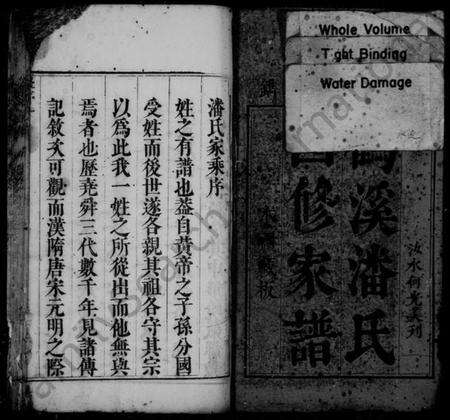 Whole Volume
Tight Binding
Water Damage
溪潘氏
修家譜
汝水何
板
潘氏家乘序
姓之有譜也葢自黃帝之子孫分國
受姓而後世遂各親其祖各守其宗
以為此我一姓之所從出而他無與
焉者也歷堯舜三代數千年見諸傳
記敘次可觀而漢隋唐宋元明之際